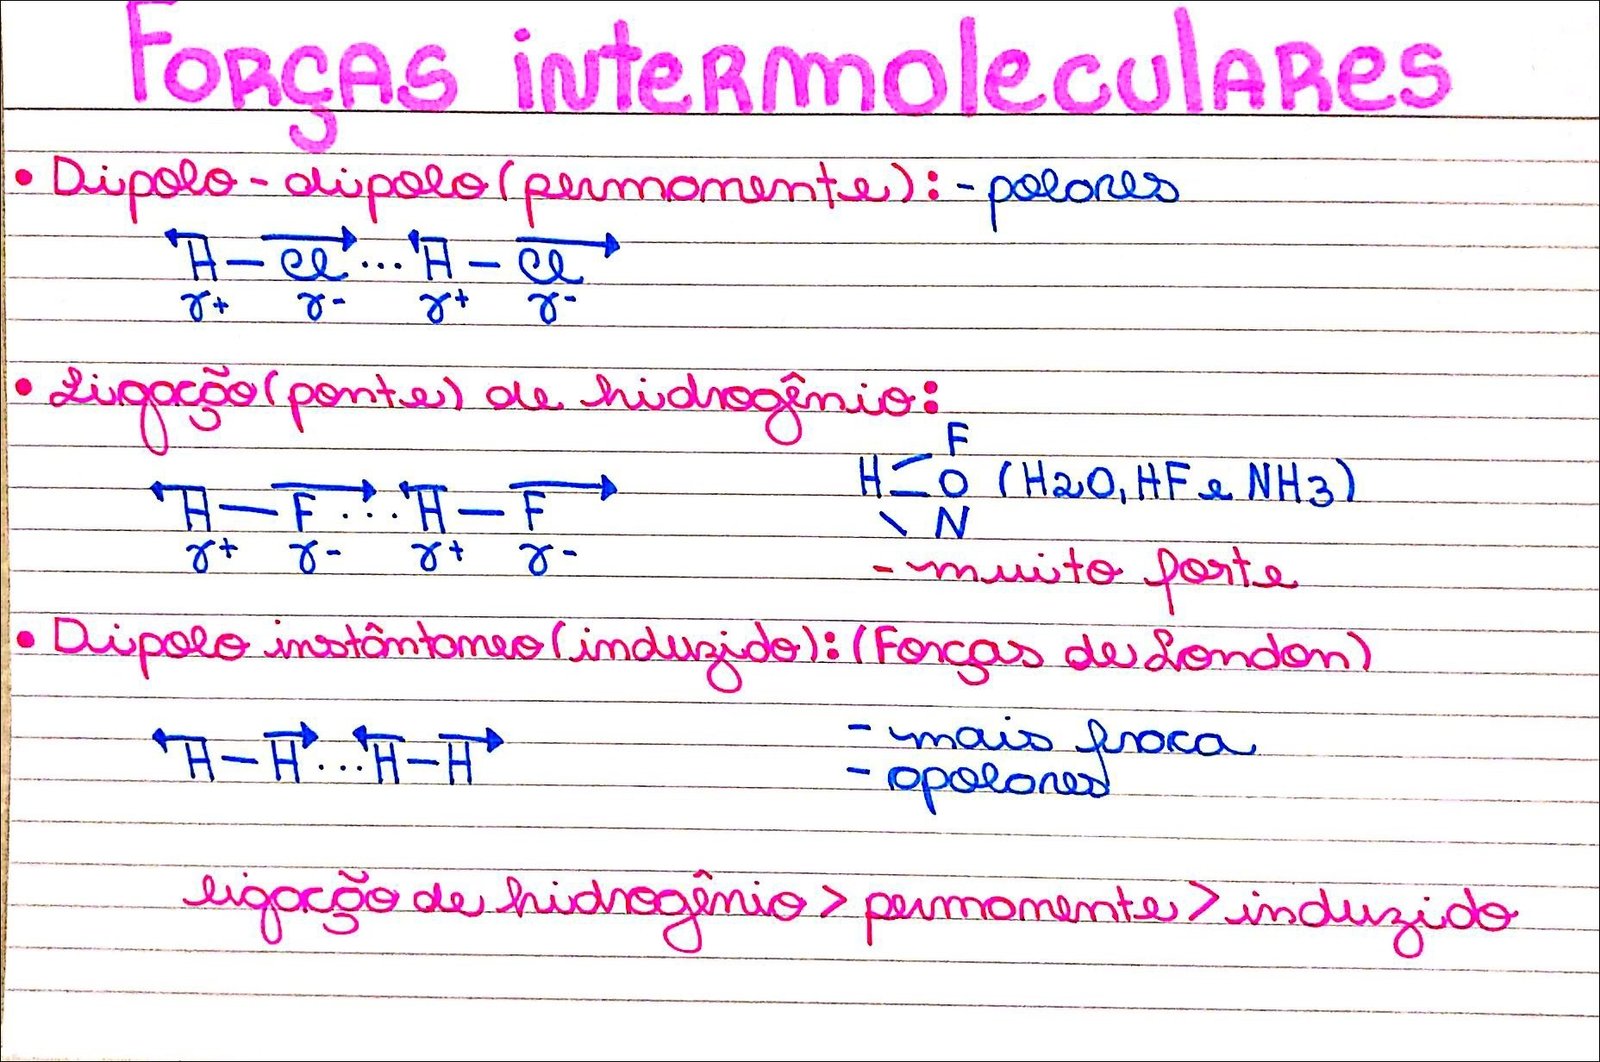 Forças intermoleculares
• Dipolo - dipolo (permanente): - polares
H — Cl ... H — Cl
γ+ γ- γ+ γ-
• Ligação (ponte) de hidrogênio:
F
H O (H2O, HF e NH3)
H — F ... H — F
N
γ+ γ- γ+ γ-
- muito forte
• Dipolo instântaneo (induzido): (Forças de London)
H — H ... H — H
- mais fraca
- apolares
ligação de hidrogênio > permanente > induzido